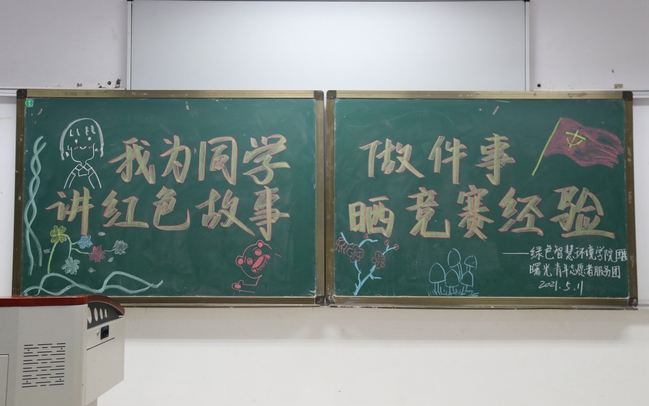 我为同学
讲红色故事
做件事
晒竞赛经验
——绿色智慧环境学院
曙光青年志愿者服务团
2021.5.11